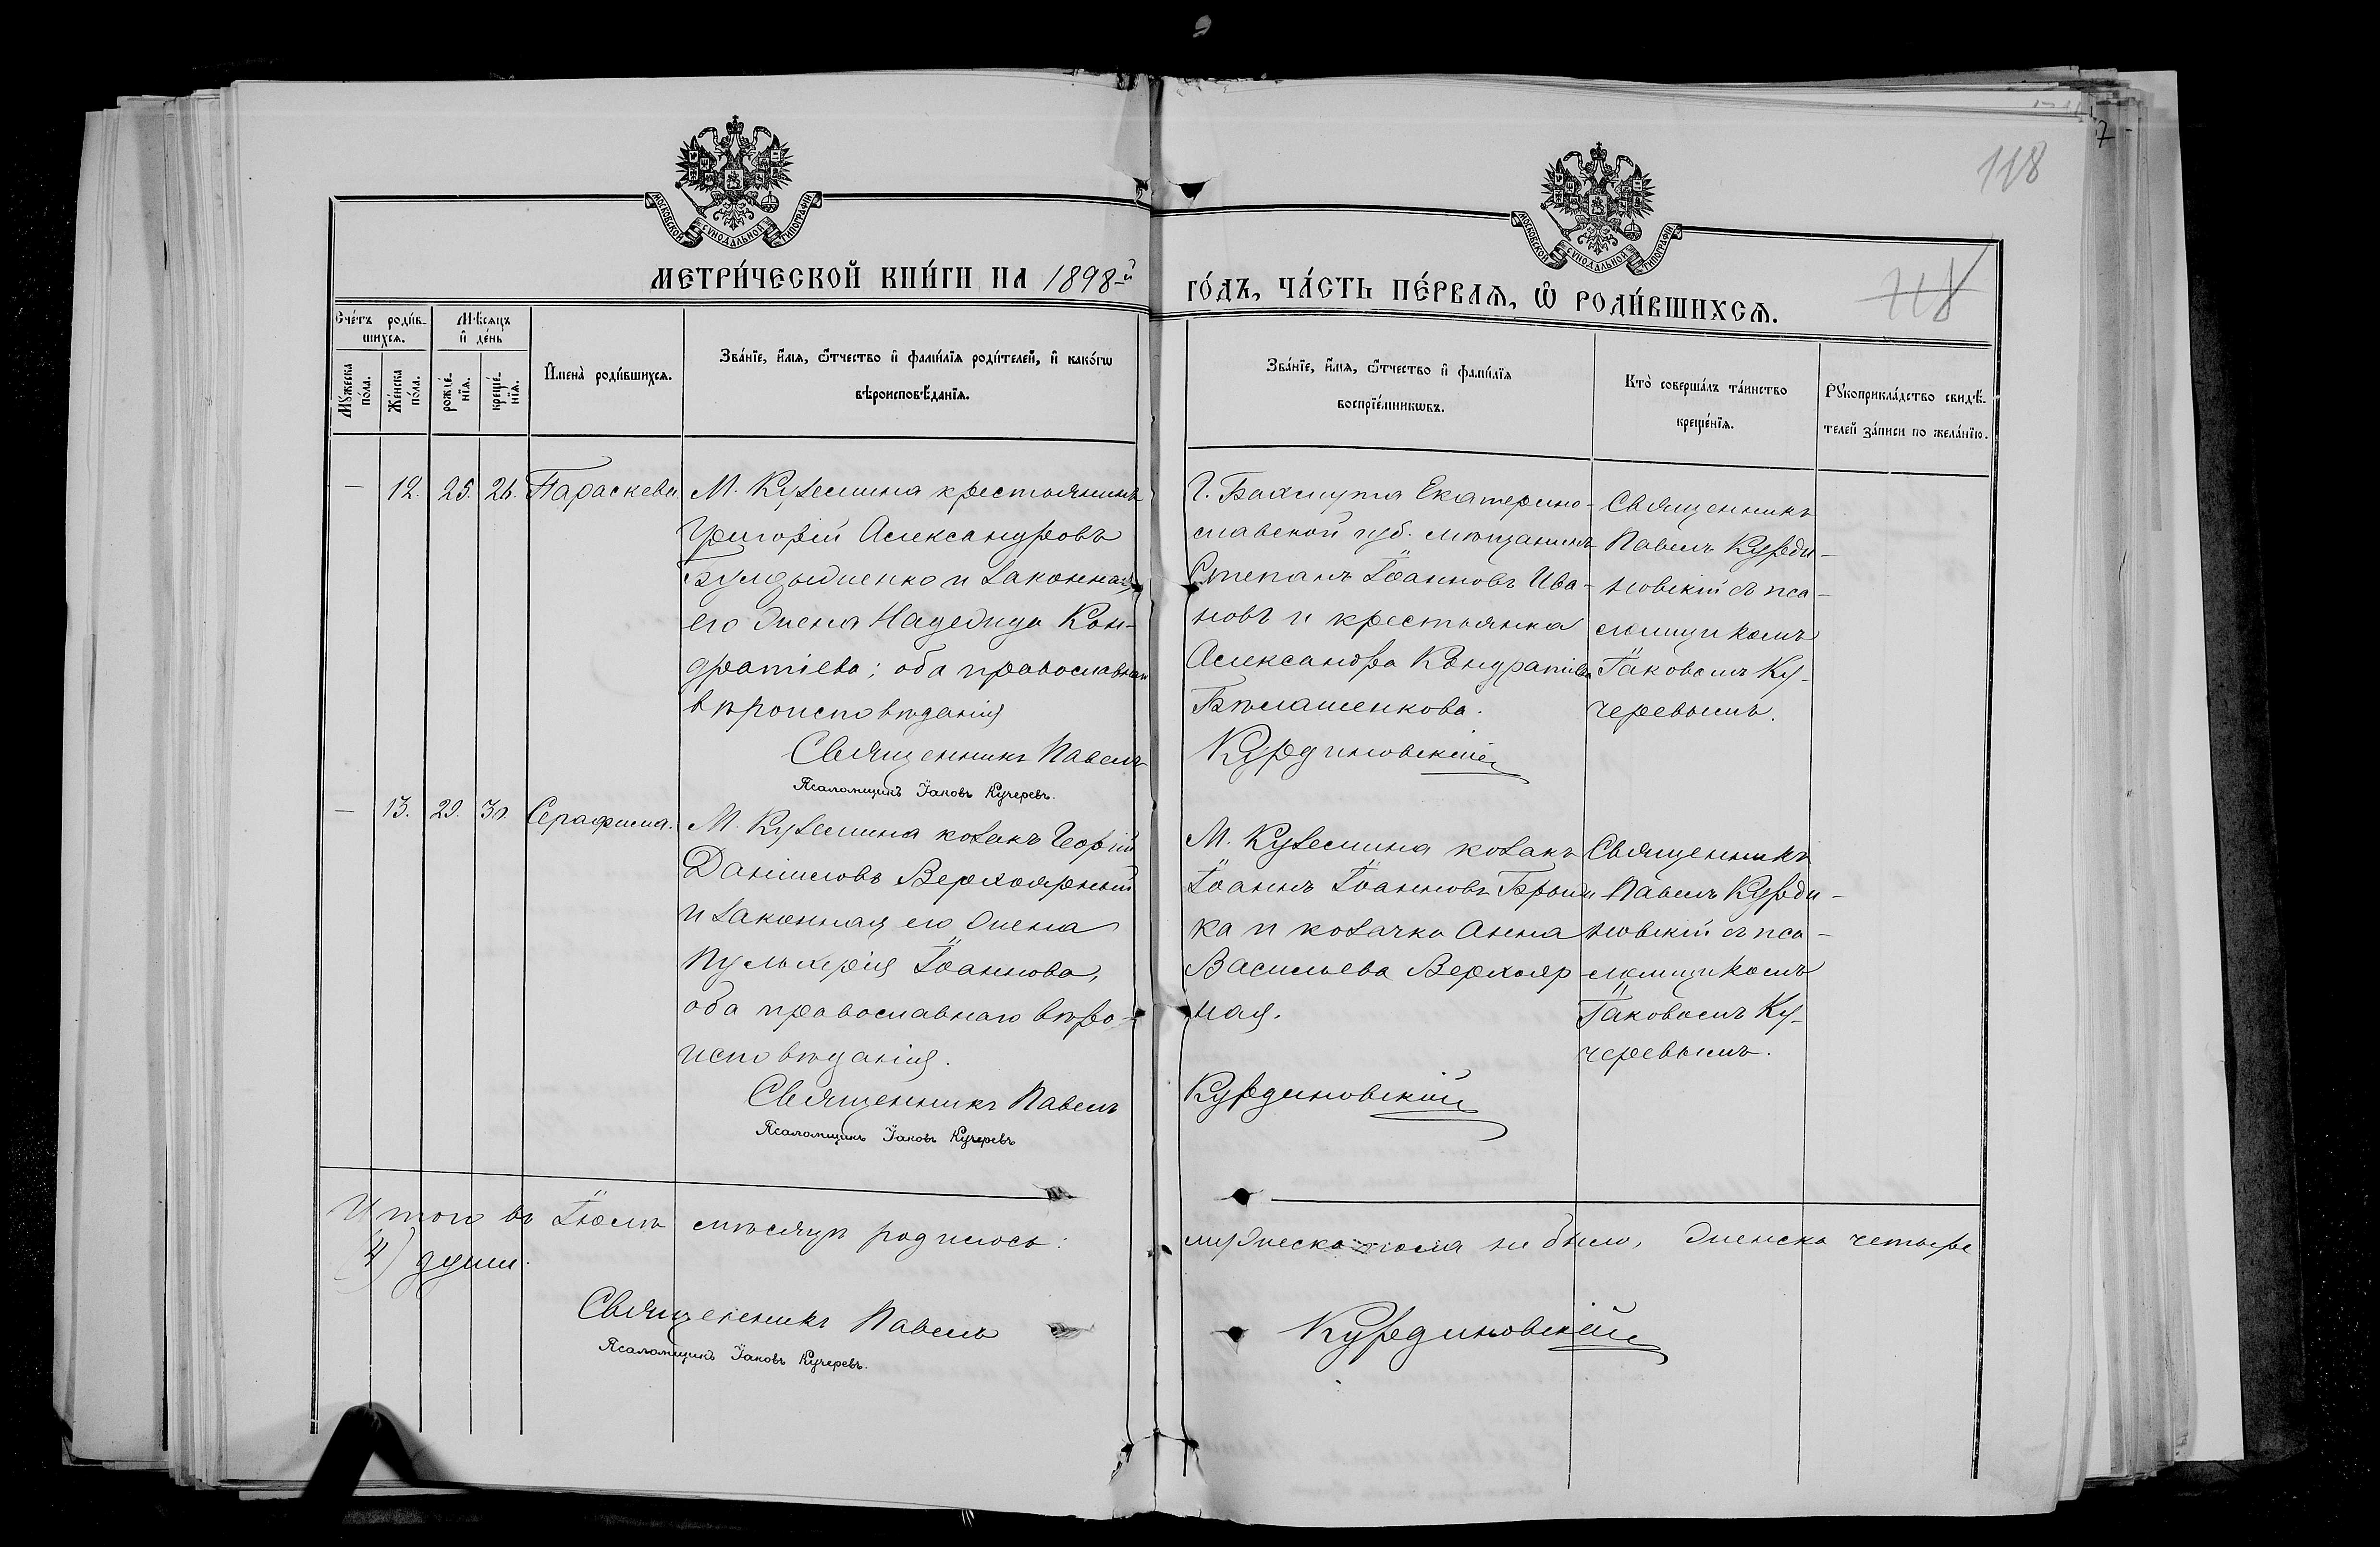 118
7
МОСКОВСКОЙ СУНОДАЛЬНОЙ ТИПОГРАФІИ
МОСКОВСКОЙ СУНОДАЛЬНОЙ ТИПОГРАФІИ
МЕТРИ́ЧЕСКОЙ КНИ́ГИ НА 1898-й
ГО́ДЪ, ЧА́СТЬ ПЕ́РВАѦ, Ѡ҆ РОДИ́ВШИХСѦ.
118
Сче́тъ роди́в-
шихсѧ.
Мꙋ́жеска по́ла.
Же́нска по́ла.
Мѣ́сѧцъ
и҆ де́нь
рожде́-
нїѧ.
креще́-
нїѧ.
И҆мена̀ роди́вшихсѧ.
Зва́нїе, и҆́мѧ, ѻ҆́тчество и҆ фами́лїѧ роди́телей, и҆ како́гѡ
вѣроисповѣ́данїѧ.
Зва́нїе, и҆́мѧ, ѻ҆́тчество и҆ фами́лїѧ
воспрїе́мникѡвъ.
Кто̀ соверша́лъ та́инство
креще́нїѧ.
Рꙋкоприкла́дство свидѣ́-
телей за́писи по жела́нїю.
— 12. 25. 26. Параскева
М. Куземина крестьянинъ
Григорій Александровъ
и законная
его жена Надежда Кон-
дратіева; оба православнаго
вѣроисповѣданія
Священникъ Павелъ
Псаломщикъ Іаковъ Кучеревъ.
Г. Бахмута Екатерино-
славской губ. мѣщанинъ
Степанъ Іоанновъ Ива-
новъ и крестьянка
Александра Кондратіева
Бѣлашенкова.
Курдиновскій
Священникъ
Павелъ Курди-
новскій съ пса-
ломщикомъ
Іаковомъ Ку-
черевымъ.
— 13. 29. 30. Серафима.
М. Куземина козакъ Георгій
Даніиловъ Верхоярный
и законная его жена
Пульхерія Іоаннова,
оба православнаго вѣро-
исповѣданія.
Священникъ Павелъ
Псаломщикъ Іаковъ Кучеревъ
М. Куземина козакъ
Іоаннъ Іоанновъ
ка и козачка Анна
Васильева Верхояр-
ная.
Курдиновскій
Священникъ
Павелъ Курди-
новскій съ пса-
ломщикомъ
Іаковомъ Ку-
черевымъ.
Итого въ Іюлѣ мѣсяцѣ родилось:
мужеска пола не было, женска четыре
(4) души.
Священникъ Павелъ
Курдиновскій
Псаломщикъ Іаковъ Кучеревъ.